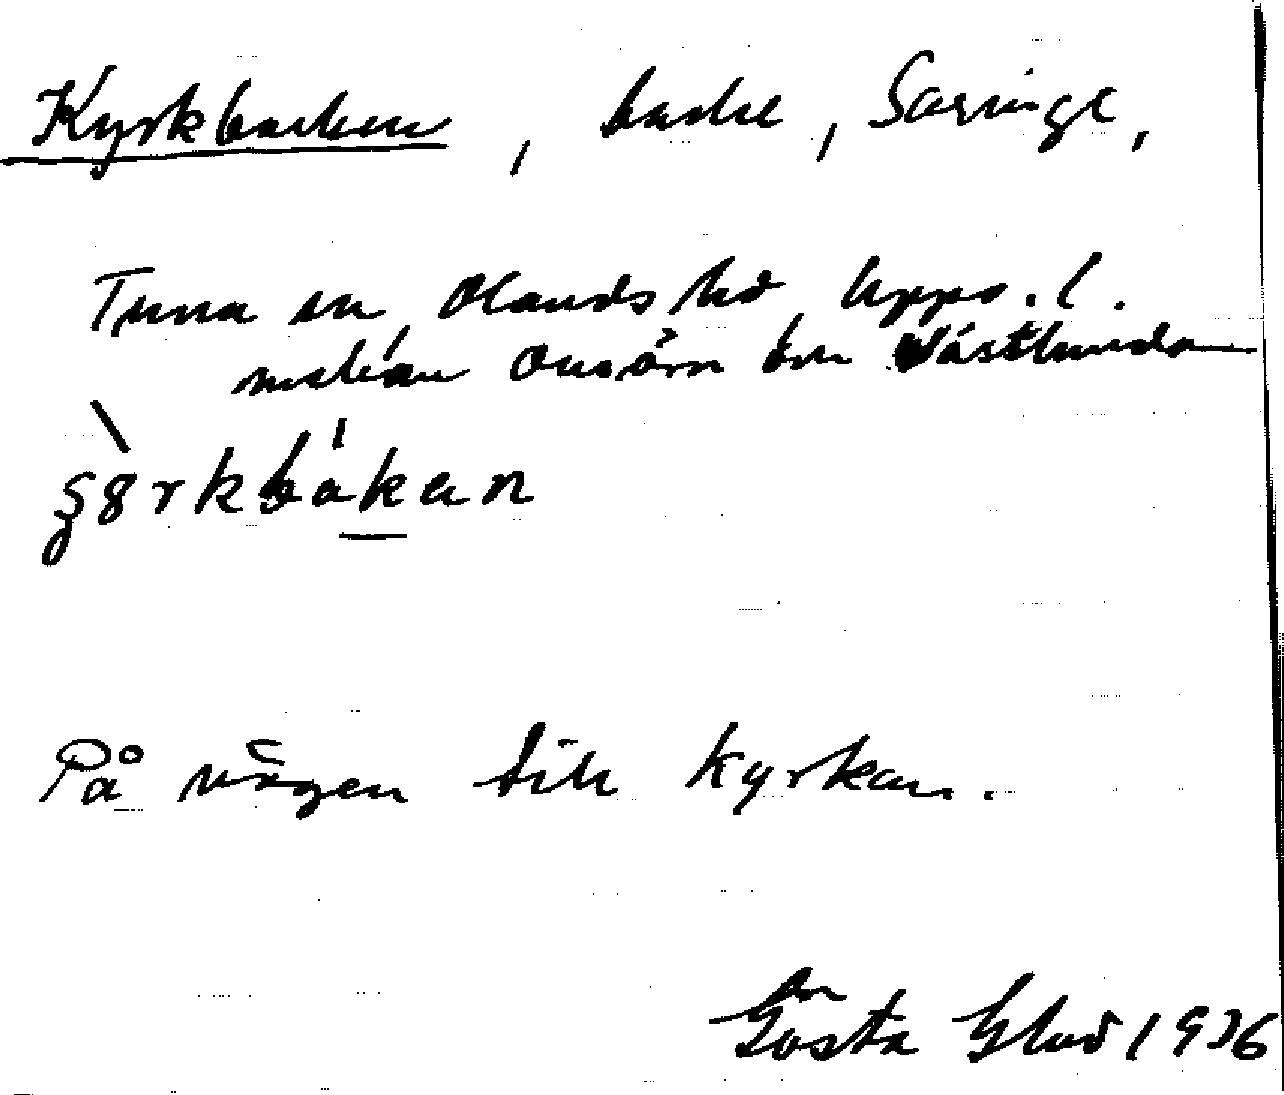 Kyrkbacken, backe, Sarringe,
Tuna sn, Olands hd, Upps. l.
mellan och Västlunda
På vägen till kyrkan.
Gösta 1936